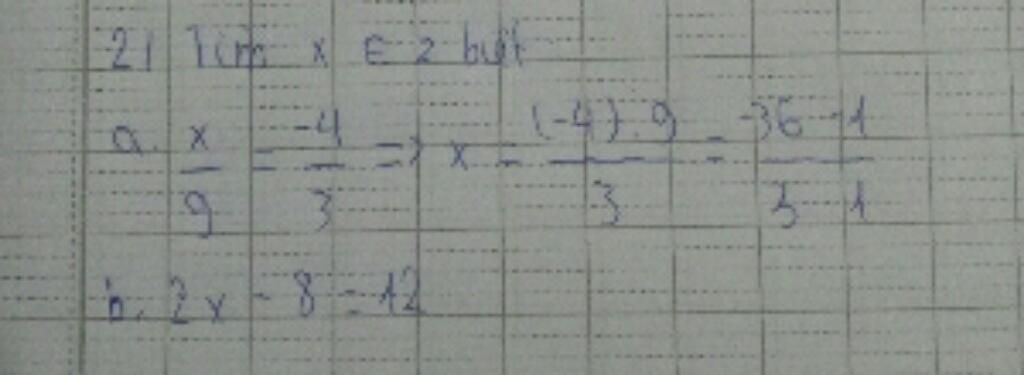 2) Tìm x ∈ z biết
a. x/9 = -4/3 => x = (-4).9/3 = -36/3 -1/1
b. 2x - 8 = 12